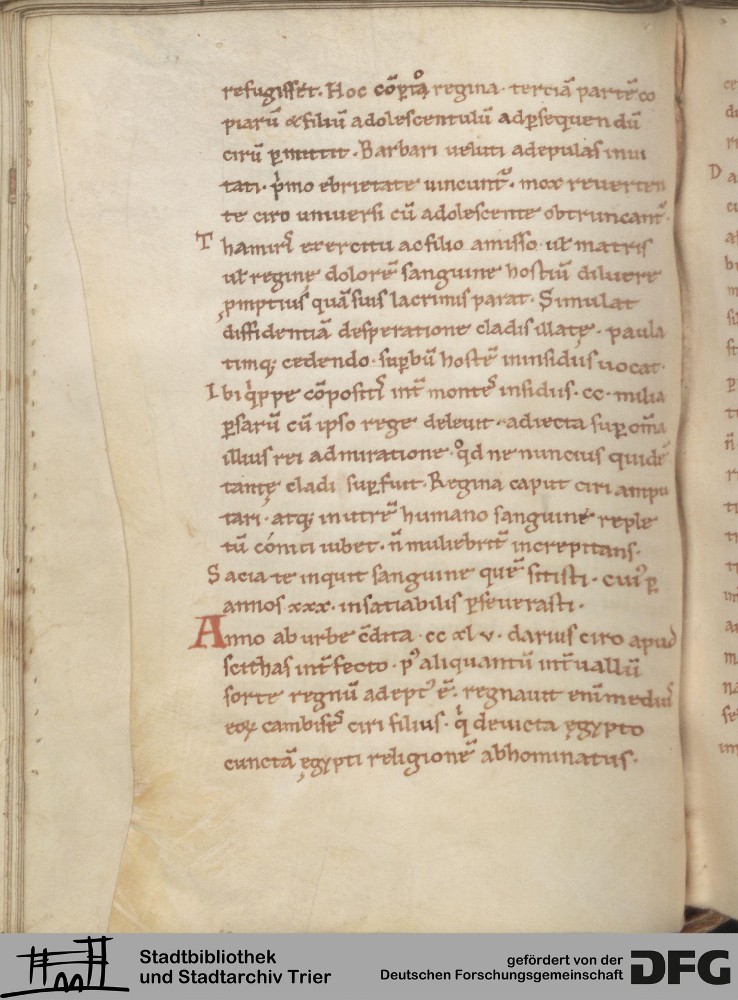 refugisset. Hoc cōꝑto regina. tertiā partē co
piarū & filiū adolescentulū ad ꝑsequendū
cirū ꝑmittit. Barbari ueluti ad epulas inui
tati. pͥmo ebrietate uincunt᷑. mox reuerten
te ciro uniuersi cū adolescente obtruncant᷑.
Thamirꝭ exercitu ac filio amisso. uł matris
uł reginę dolorē sanguine hostiū diluere
ꝓmptius quā suis lacrimis parat. Simulat
diffidentiā desperatione cladis illatę. paula
timq; cedendo. suꝑbū hostē in insidias uocat.
Ibi qͥppe cōpositis int᷑ montes insidiis. cc. milia
ꝑsarū cū ipso rege deleuit. adiecta suꝑ om̄a
illius rei admiratione. qͦd ne nuncius quidē
tantę cladi suꝑfuit. Regina caput ciri ampu
tari. atq; in utrē humano sanguine reple
tū cónici iubet. n̄ muliebrit᷑ increpitans.
Sacia te inquit sanguine quē sitisti. cuiꝰ ꝑ
annos xxx. insatiabilis ꝑseuerasti.
Anno ab urbe c̄dita. cc xl v. darius ciro apud
scithas int᷑fecto. pꝰ aliquantū int᷑uallū
sorte regnū adeptꝰ ē. regnauit enī mediꝰ
eoꝝ cambises ciri filius. qͥ deuicta ęgypto
cunctā ęgypti religionē abhominatus.
Stadtbibliothek
und Stadtarchiv Trier
gefördert von der
Deutschen Forschungsgemeinschaft
DFG